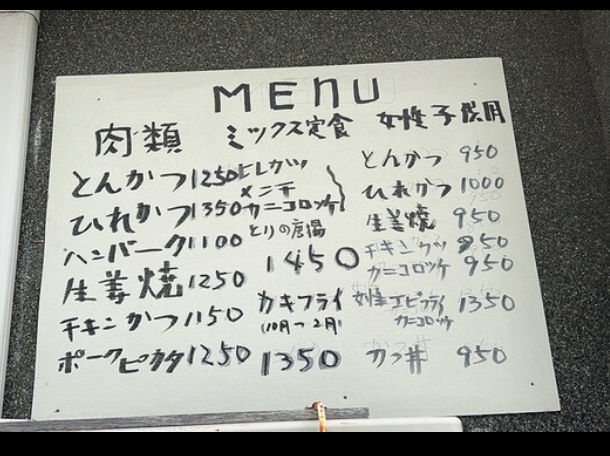 MENU
肉類
とんかつ 1250
ひれかつ 1350
ハンバーク 1100
生姜焼 1250
チキンかつ 1150
ポークピカタ 1250
ミックス定食
ヒレカツ
メンチ
カニコロッケ
とりの唐揚
1450
カキフライ
(10月〜2月)
1350
女性子供用
とんかつ 950
ひれかつ 1000
生姜焼 950
チキンカツ 950
カニコロッケ 950
女性エビフライ 1350
カニコロッケ
かつ丼 950